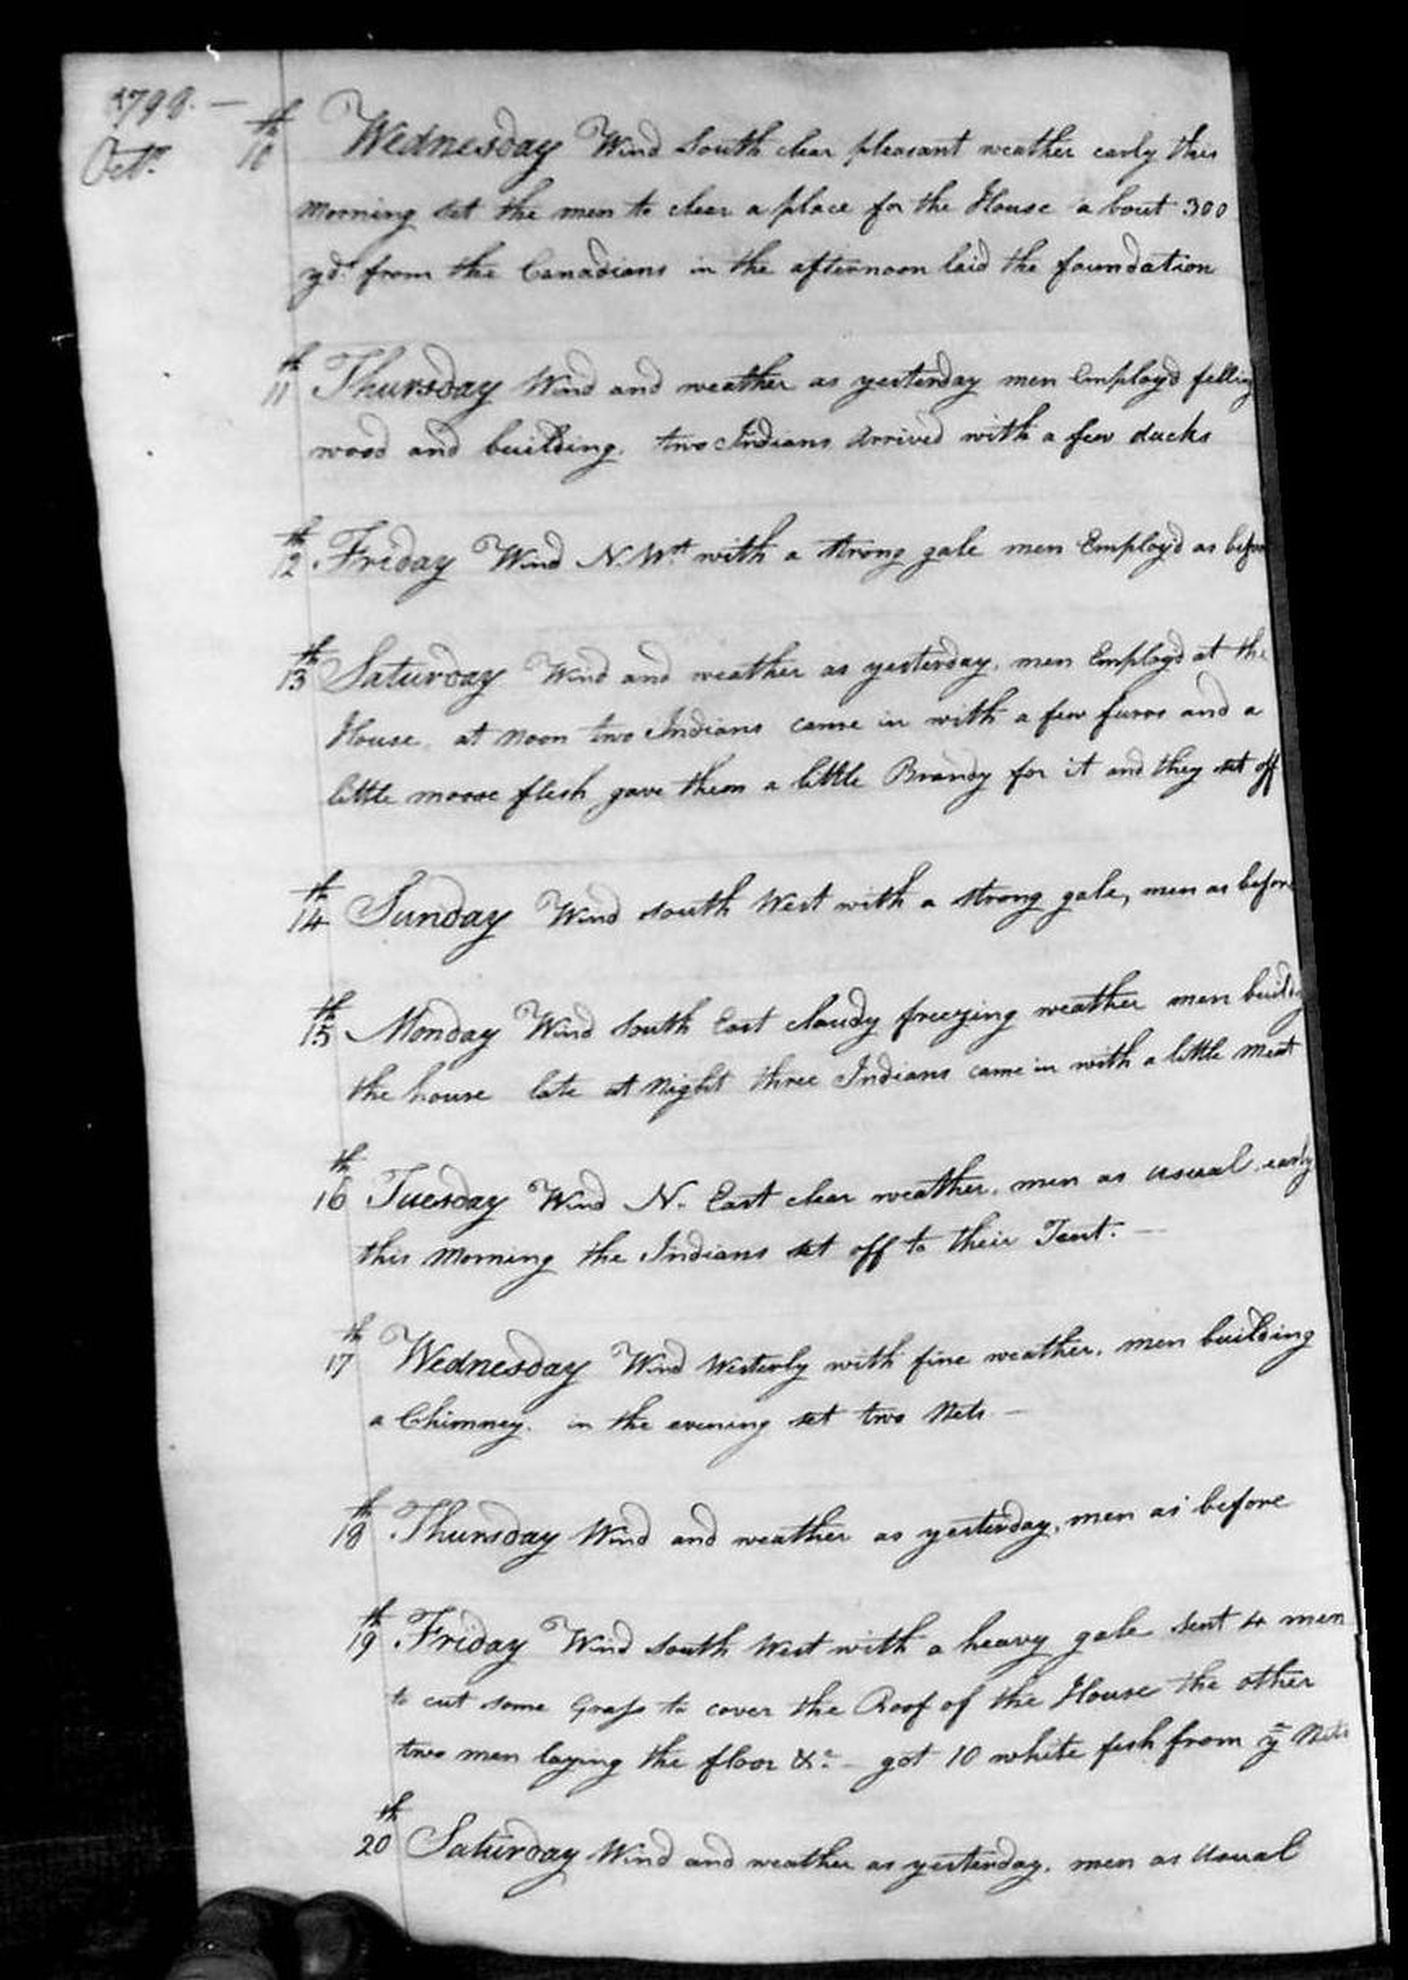 1798. —
Octr. 10th Wednesday Wind South clear pleasant weather early this
morning set the men to clear a place for the House a bout 300
yds. from the Canadians in the afternoon laid the foundation
11th Thursday Wind and weather as yesterday men Employ'd felling
wood and building. two Indians Arrived with a few ducks
12th Friday Wind N.Wt. with a strong gale men Employ'd as before
13th Saturday Wind and weather as yesterday. men Employd at the
House. at Noon two Indians came in with a few furrs and a
little moose flesh gave them a little Brandy for it and they set off
14th Sunday Wind south West with a strong gale, men as before
15th Monday Wind South East cloudy freezing weather men building
the house late at Night three Indians came in with a little meat
16th Tuesday Wind N. East clear weather. men as usual. early
this Morning the Indians set off to their Tent. —
17th Wednesday Wind Westerly with fine weather. men building
a Chimney. in the evening set two Nets —
18th Thursday Wind and weather as yesterday. men as before
19th Friday Wind South West with a heavy gale sent 4 men
to cut some Grass to cover the Roof of the House the other
two men laying the floor &c. — got 10 white fish from ye Nets
20th Saturday Wind and weather as yesterday. men as Usual